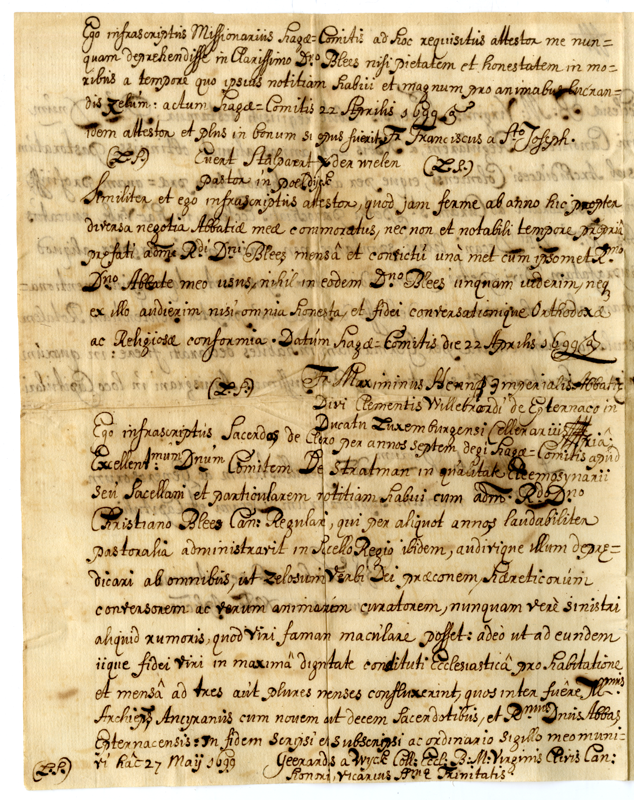 Ego infrascriptus Missionarius Hagæ-Comitis ad hoc requisitus attestor me nun=
quam deprehendisse in Clarissimo Dno Blees nisi pietatem et honestatem in mo-
ribus a tempore quo ipsius notitiam habui et magnum pro animabus lucran-
dis zelum: actum Hagæ-Comitis 22 Aprilis 1699
idem attestor et plus in bonum si opus fuerit Fr Franciscus a Sto Joseph.
(L.S.) Evert Stalpart vder welen (L.S.)
pastor in poeldijck
Similiter et ego infrascriptus attestor, quod jam ferme ab anno hic propter
diversa negotia Abbatiæ meæ commoratus, nec non et notabili tempore proprii
præfati adm: Rdi Dni Blees mensâ et convictû unà met cum ipsomet Rmo
Dno Abbate meo usus, nihil in eodem Dno Blees unquam viderim, neq
ex illo audierim nisi omnia honesta, et fidei conversationique Orthodoxæ
ac Religiosæ conformia. Datum Hagæ-Comitis die 22 Aprilis 1699
(L.S.) Fr. Maximinus Imperialis Abbatiæ
Divi Clementis Willebrordi de Epternaco in
Ducatu Luxemburgensi Cellerarius
Ego infrascriptus Sacerdos de Clero per annos septem degi Hagæ-Comitis apud
Excellent:mum Dnum Comitem De Stratman in qualitate Eleemosynarii
seu Sacellani et particularem notitiam habui cum adm Rdo Dno
Christiano Blees Can: Regulari, qui per aliquot annos laudabiliter
pastoralia administravit in Sacello Regio ibidem, audivique illum depræ-
dicari ab omnibus, ut zelosum verbi Dei præconem, hæreticorum
conversorem ac verum animarum curatorem, nunquam verè sinistri
aliquid rumoris, quod viri famam maculare posset: adeò ut ad eundem
iique fidei viri in maximâ dignitate constituti Ecclesiasticâ pro habitatione
et mensâ ad tres aut plures menses confluxerint, quos inter fuêre Illmus
Archiep Ancyranus cum novem ut decem Sacerdotibus, et Rmus Dnus Abbas
Epternacensis: In fidem scripsi et subscripsi ac ordinario sigillo meo muni-
vi hac 27 Maij 1699 Geerardus a Wyck Coll: Eccl: B. M. Virginis Clivis Can:
(L.S.) honor, vicarius Smæ Trinitatis